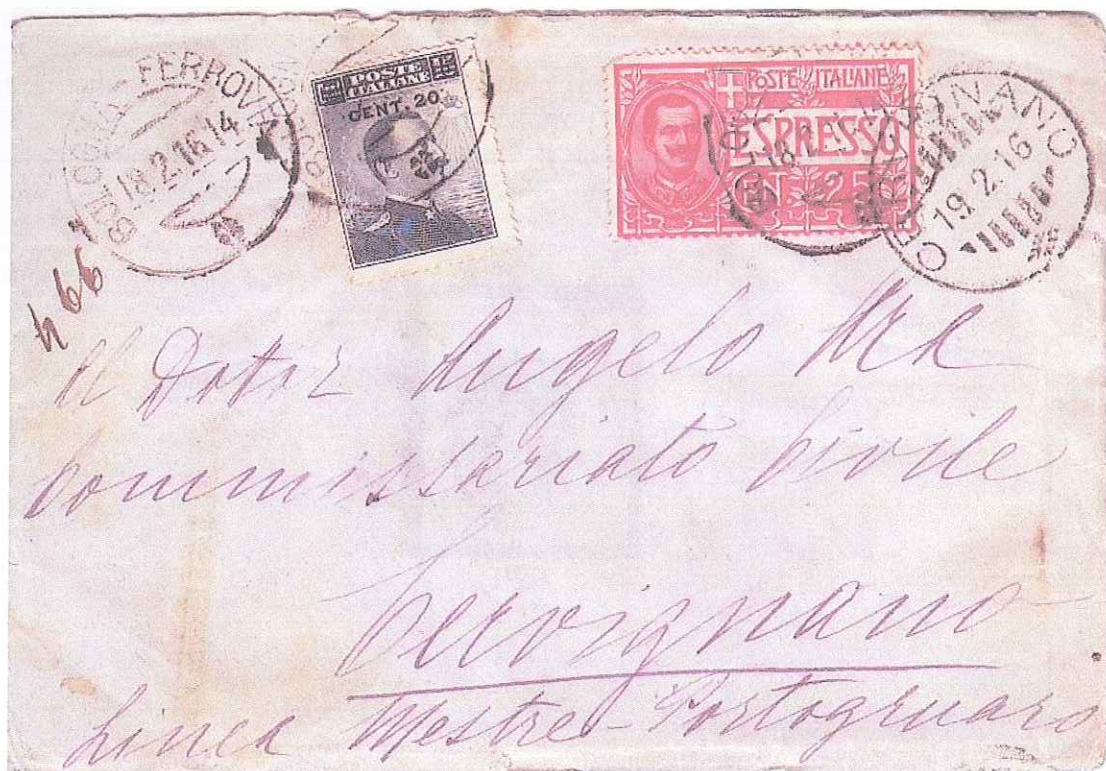 BOLOGNA - FERROVIA
18.2.16 14
POSTE
ITALIANE
CENT. 20
POSTE ITALIANE
ESPRESSO
CENT. 25
18.2.16
CERVIGNANO
19.2.16
466
Al Dotor Angelo Ara
Commissariato Civile
Cervignano
Linea Mestre-Portogruaro